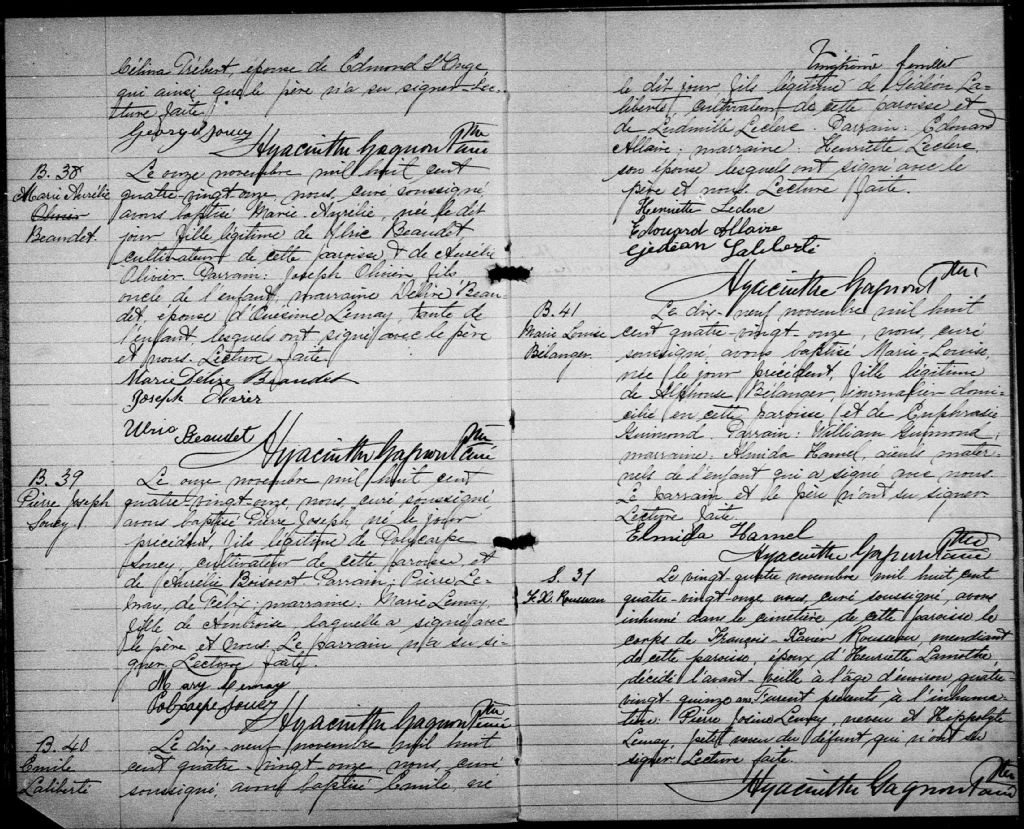 Célina Trébert, épouse de Edmond St Onge
qui ainsi que le père n'a su signer Lec-
ture faite
George Soucy
Hyacinthe Gagnon Ptre curé
B. 38
Marie Aurélie
Olivier
Beaudet.
Le onze novembre mil huit cent
quatre-vingt-onze, nous, curé soussigné
avons baptisé Marie-Aurélie, née le dit
jour fille légitime de Ulric Beaudet
cultivateur de cette paroisse & de Aurélie
Olivier. Parrain: Joseph Olivier fils
oncle de l'enfant, marraine Délire Beau-
det épouse d'Onésime Lemay, tante de
l'enfant lesquels ont signé avec le père
et nous. Lecture faite.
Marie Délire Beaudet
Joseph Olivier
Ulric Beaudet
Hyacinthe Gagnon Ptre curé
B. 39
Pierre Joseph
Soucy
Le onze novembre mil huit cent
quatre-vingt-onze, nous, curé soussigné
avons baptisé Pierre Joseph, né le jour
précédent, fils légitime de Polycarpe
Soucy, cultivateur de cette paroisse et
de Aurélie Boisvert Parrain: Pierre Le-
may, de Félix; marraine: Marie Lemay,
fille de Ambroise, laquelle a signé avec
le père et nous. Le parrain n'a su si-
gner Lecture faite.
Mary Lemay
Polycarpe Soucy
Hyacinthe Gagnon Ptre curé
B. 40
Emile
Laliberté
Le dix-neuf novembre mil huit
cent quatre-vingt onze, nous, curé
soussigné, avons baptisé Emile, né
Vingtième feuillet
le dit jour, fils légitime de Gédéon La-
liberté, cultivateur de cette paroisse et
de Ludmille Leclerc. Parrain: Edouard
Allaire; marraine: Henriette Leclerc,
son épouse lesquels ont signé avec le
père et nous. Lecture faite.
Henriette Leclerc
Edouard Allaire
Gédéon Laliberté
Hyacinthe Gagnon Ptre
B. 41
Marie Louise
Bélanger.
Le dix-neuf novembre mil huit
cent quatre-vingt onze, nous, curé
soussigné avons baptisé Marie-Louise,
née le jour précédent, fille légitime
de Alphonse Bélanger, journalier domi-
cilié en cette paroisse et de Euphrasie
Guimond. Parrain: William Guimond,
marraine: Almida Hamel, aieuls mater-
nels de l'enfant qui a signé avec nous.
Le parrain et le père n'ont su signer
Lecture faite.
Elmida Hamel
Hyacinthe Gagnon Ptre curé
S. 31
F. X. Rousseau
Le vingt quatre novembre mil huit cent
quatre-vingt-onze nous, curé soussigné, avons
inhumé dans le cimetière de cette paroisse le
corps de François-Xavier Rousseau, mendiant
de cette paroisse, époux d'Henriette Lamothe,
décédé l'avant-veille à l'âge d'environ quatre-
vingt quinze ans Furent présents à l'inhuma-
tion Pierre Lemay, neveu et Hippolyte
Lemay, petit neveu du défunt, qui n'ont su
signer Lecture faite.
Hyacinthe Gagnon Ptre curé